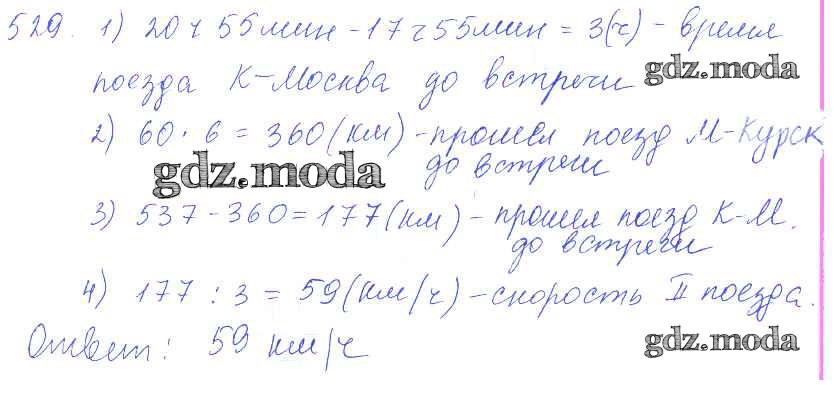 529. 1) 20 ч 55 мин - 17 ч 55 мин = 3(ч) - время
поезда К-Москва до встречи gdz.moda
2) 60 · 6 = 360 (км) - прошел поезд М-Курск
до встречи
gdz.moda
3) 537 - 360 = 177 (км) - прошел поезд К-М.
до встречи
4) 177 : 3 = 59 (км/ч) - скорость II поезда.
Ответ: 59 км/ч
gdz.moda